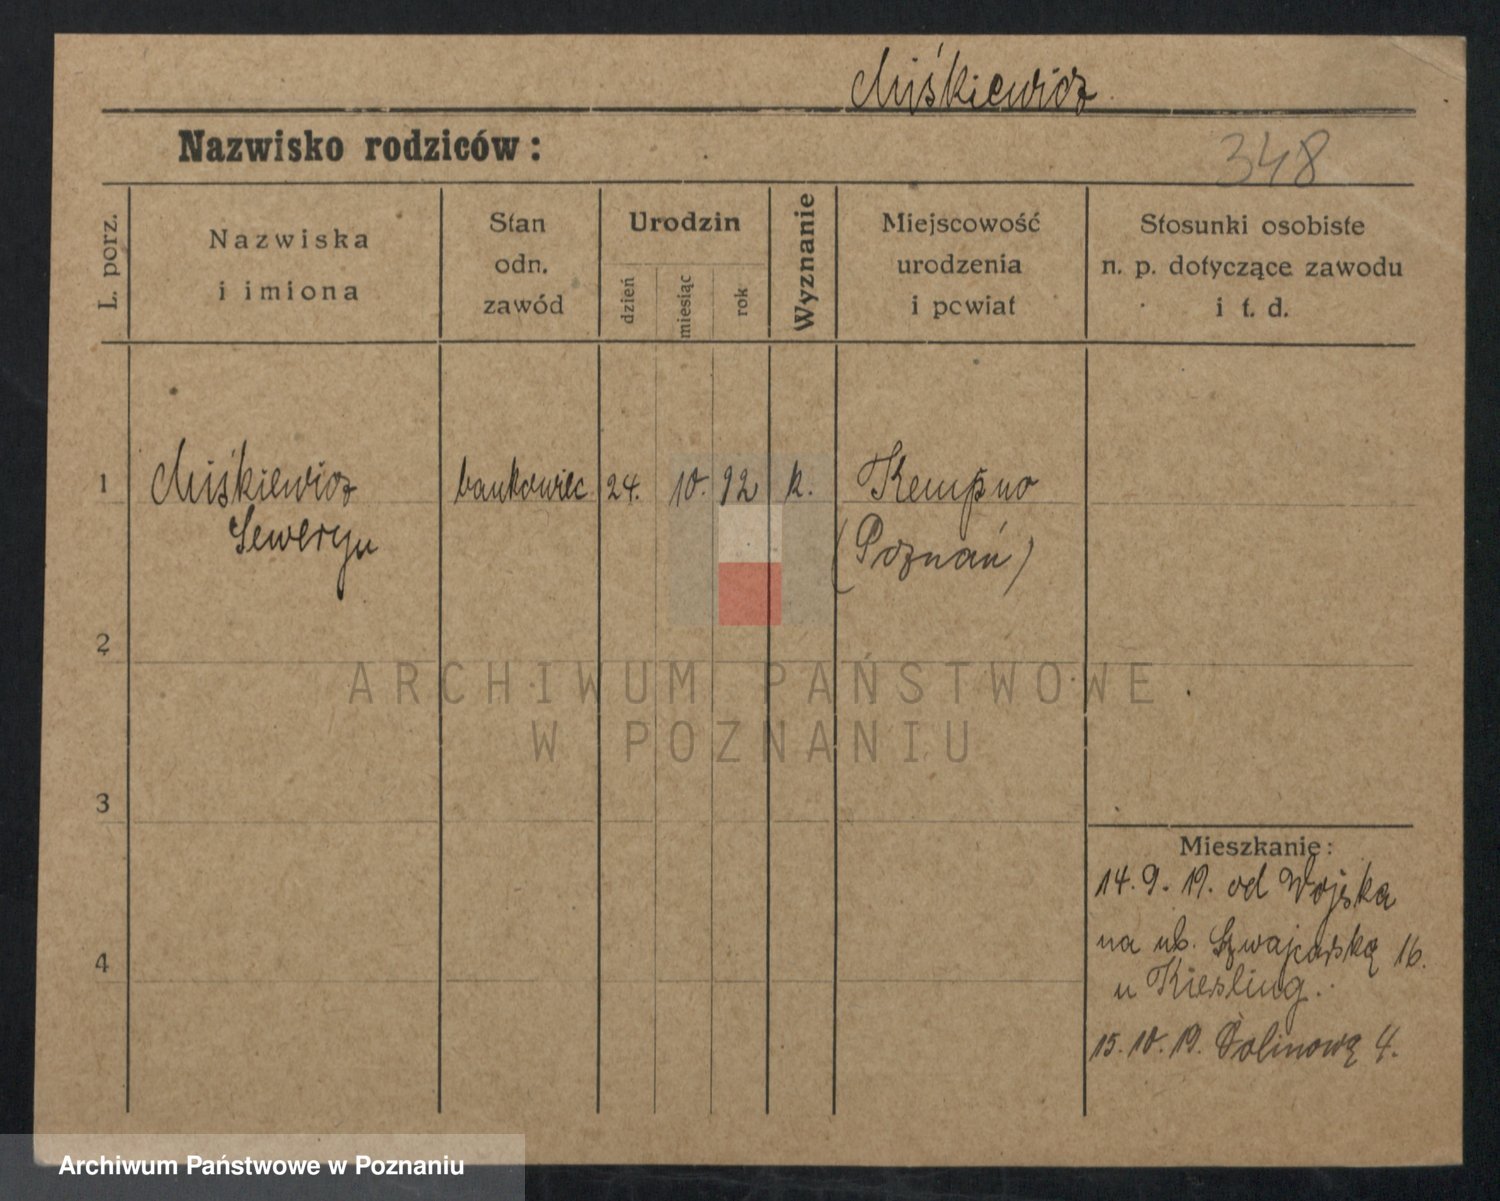 Miśkiewicz
Nazwisko rodziców:
348
L. porz.
Nazwiska
i imiona
Stan
odn.
zawód
Urodzin
dzień
miesiąc
rok
Wyznanie
Miejscowość
urodzenia
i powiat
Stosunki osobiste
n. p. dotyczące zawodu
i t. d.
1 Miśkiewicz bankowiec 24. 10. 92 k. Kempno
Seweryn (Poznań)
2
ARCHIWUM PAŃSTWOWE
W POZNANIU
3
Mieszkanie:
14. 9. 19. od Wojska
na ul. Szwajcarską 16.
4
u Kiesling.
15. 10. 19. 4.
Archiwum Państwowe w Poznaniu